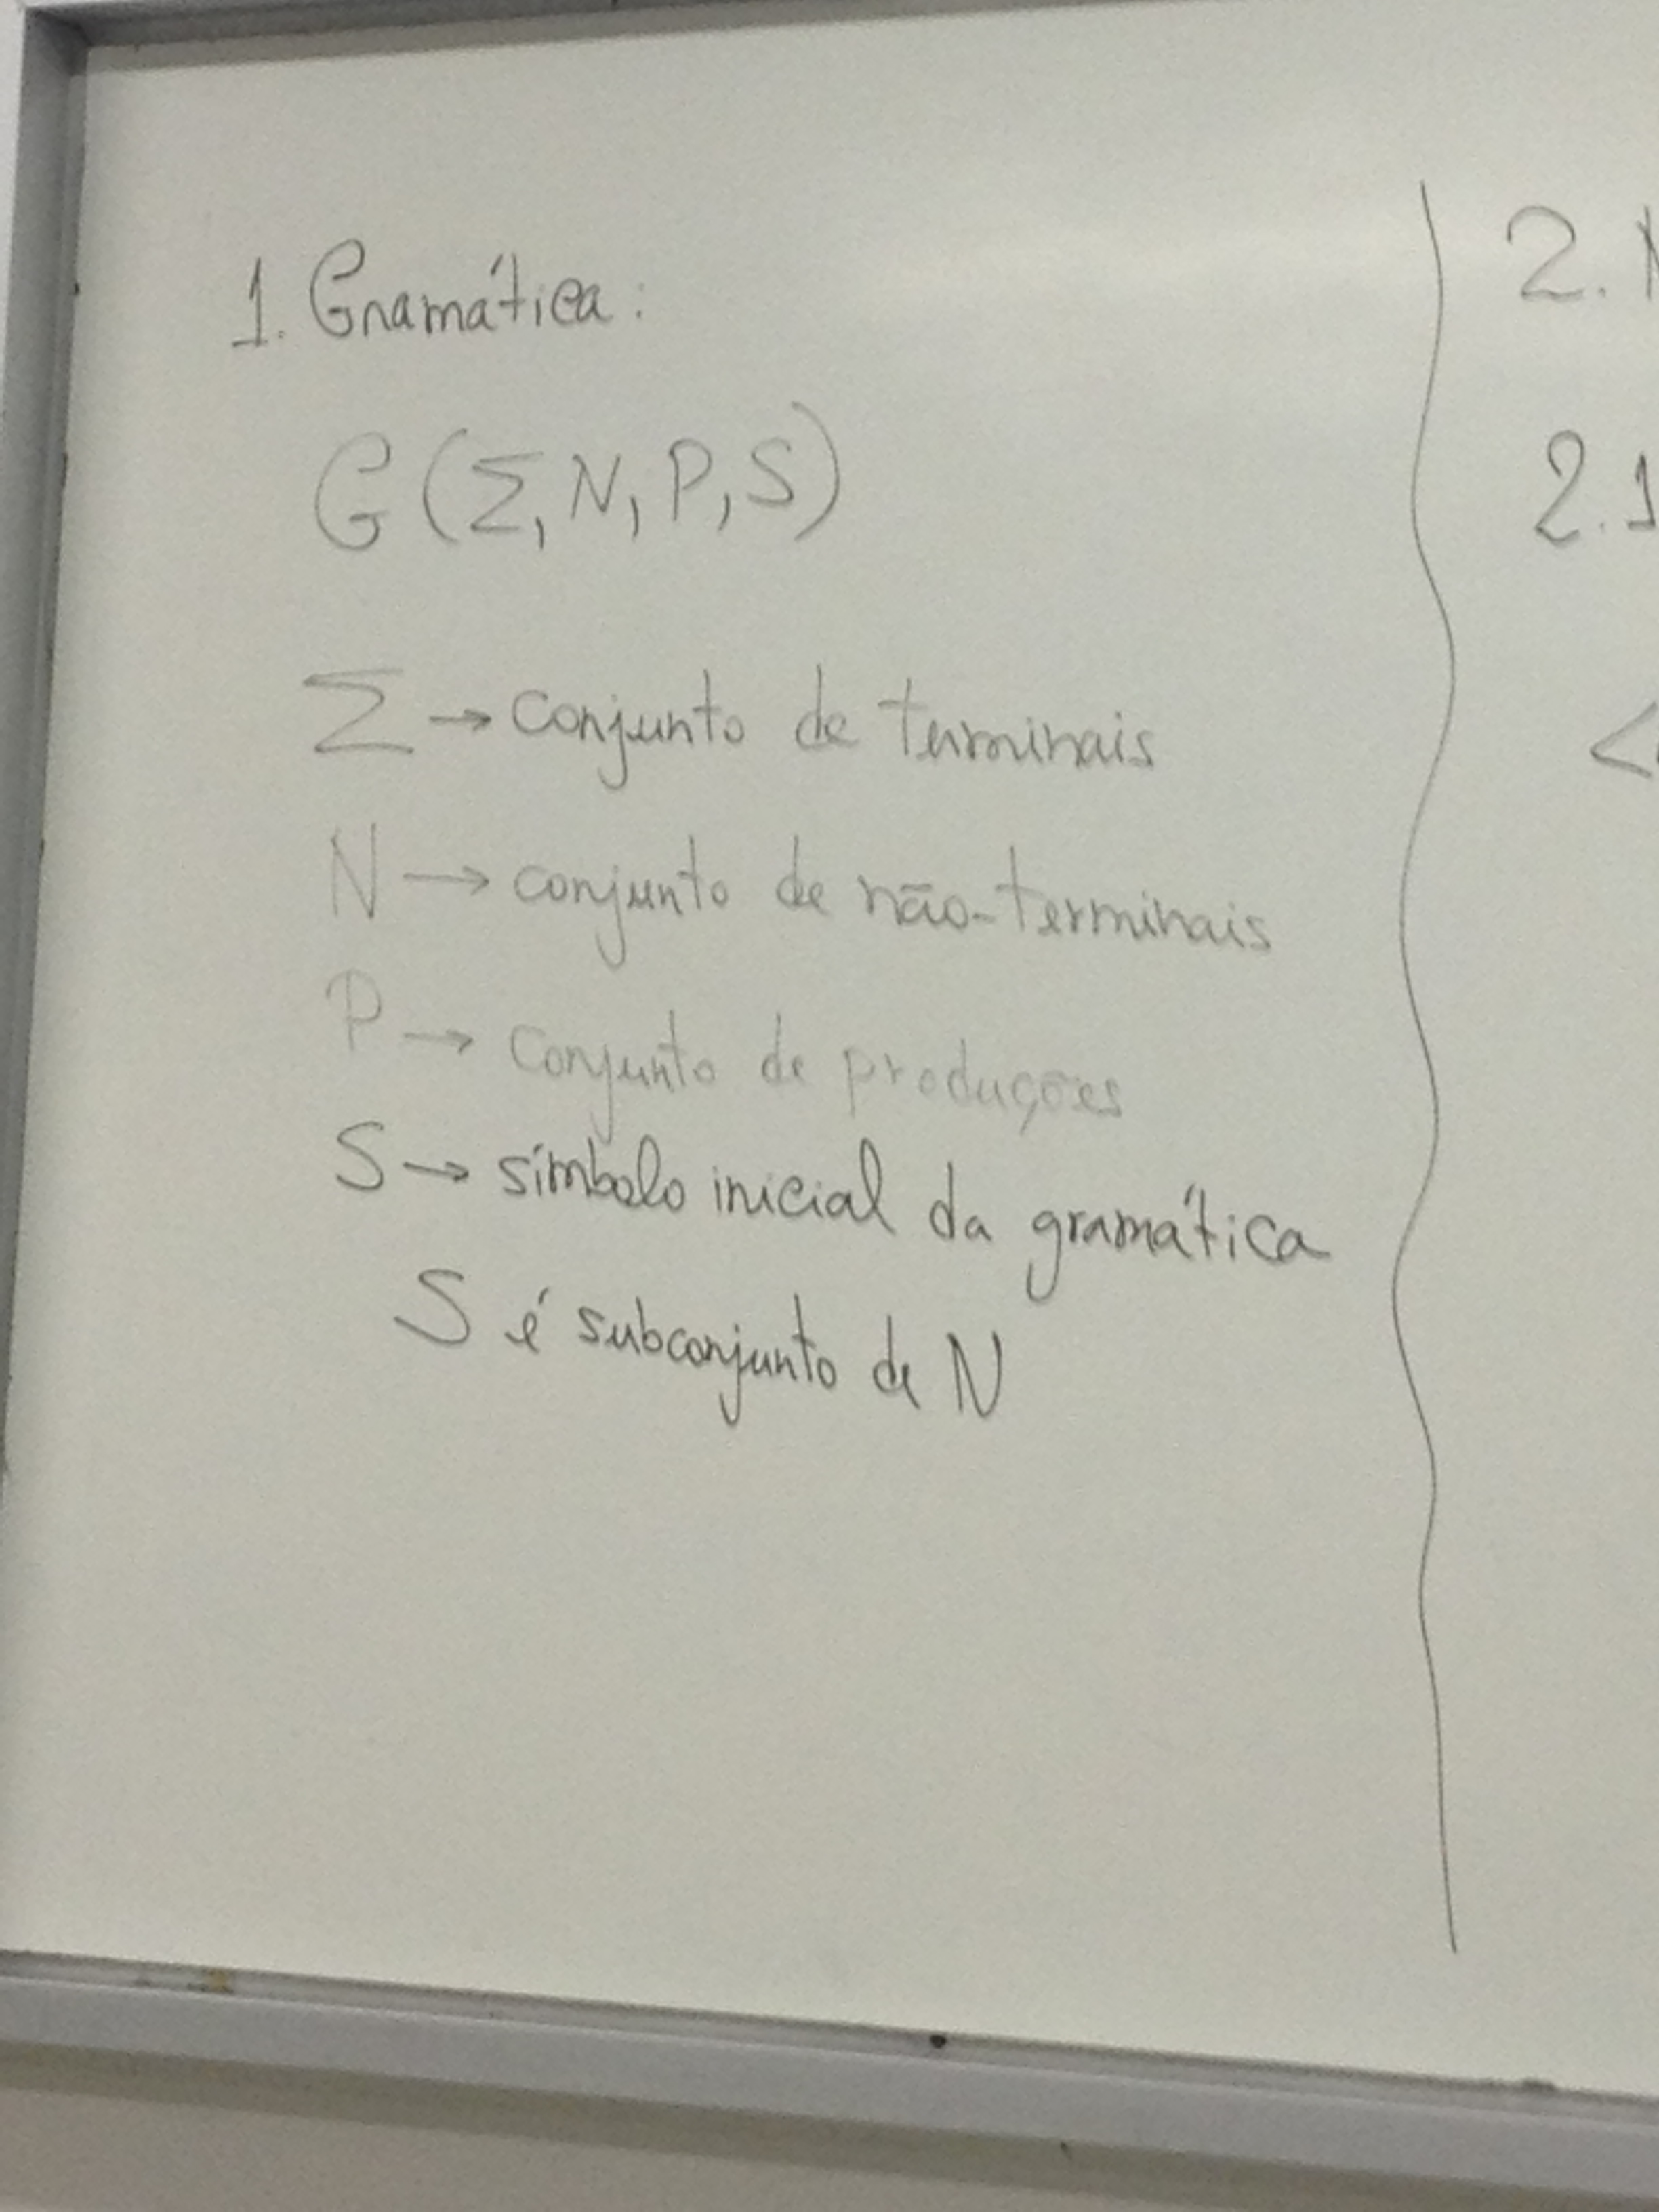 1. Gramática:
G(Σ, N, P, S)
Σ → conjunto de terminais
N → conjunto de não-terminais
P → conjunto de produções
S → símbolo inicial da gramática
S é subconjunto de N
2.
2.1
<